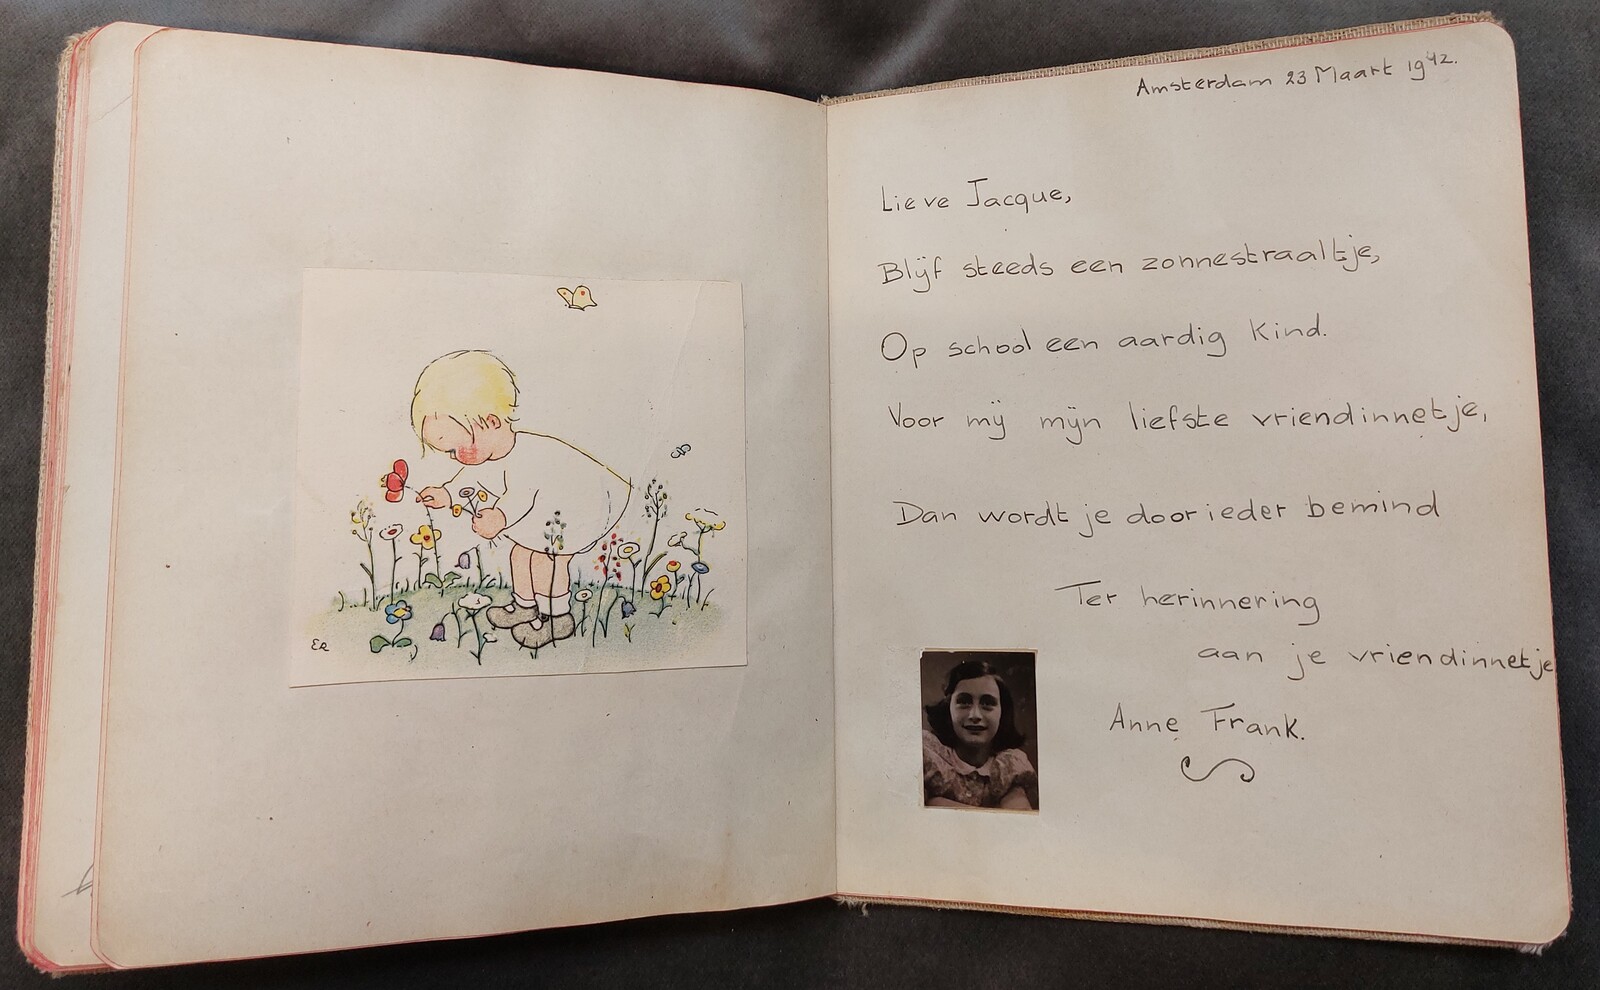 ER
Amsterdam 23 Maart 1942.
Lieve Jacque,
Blijf steeds een zonnestraaltje,
Op school een aardig kind.
Voor mij mijn liefste vriendinnetje,
Dan wordt je door ieder bemind
Ter herinnering
aan je vriendinnetje
Anne Frank.